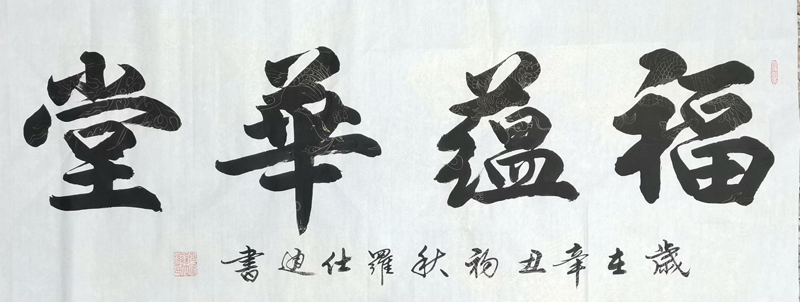 福蕴華堂
歲在辛丑初秋羅仕迪書